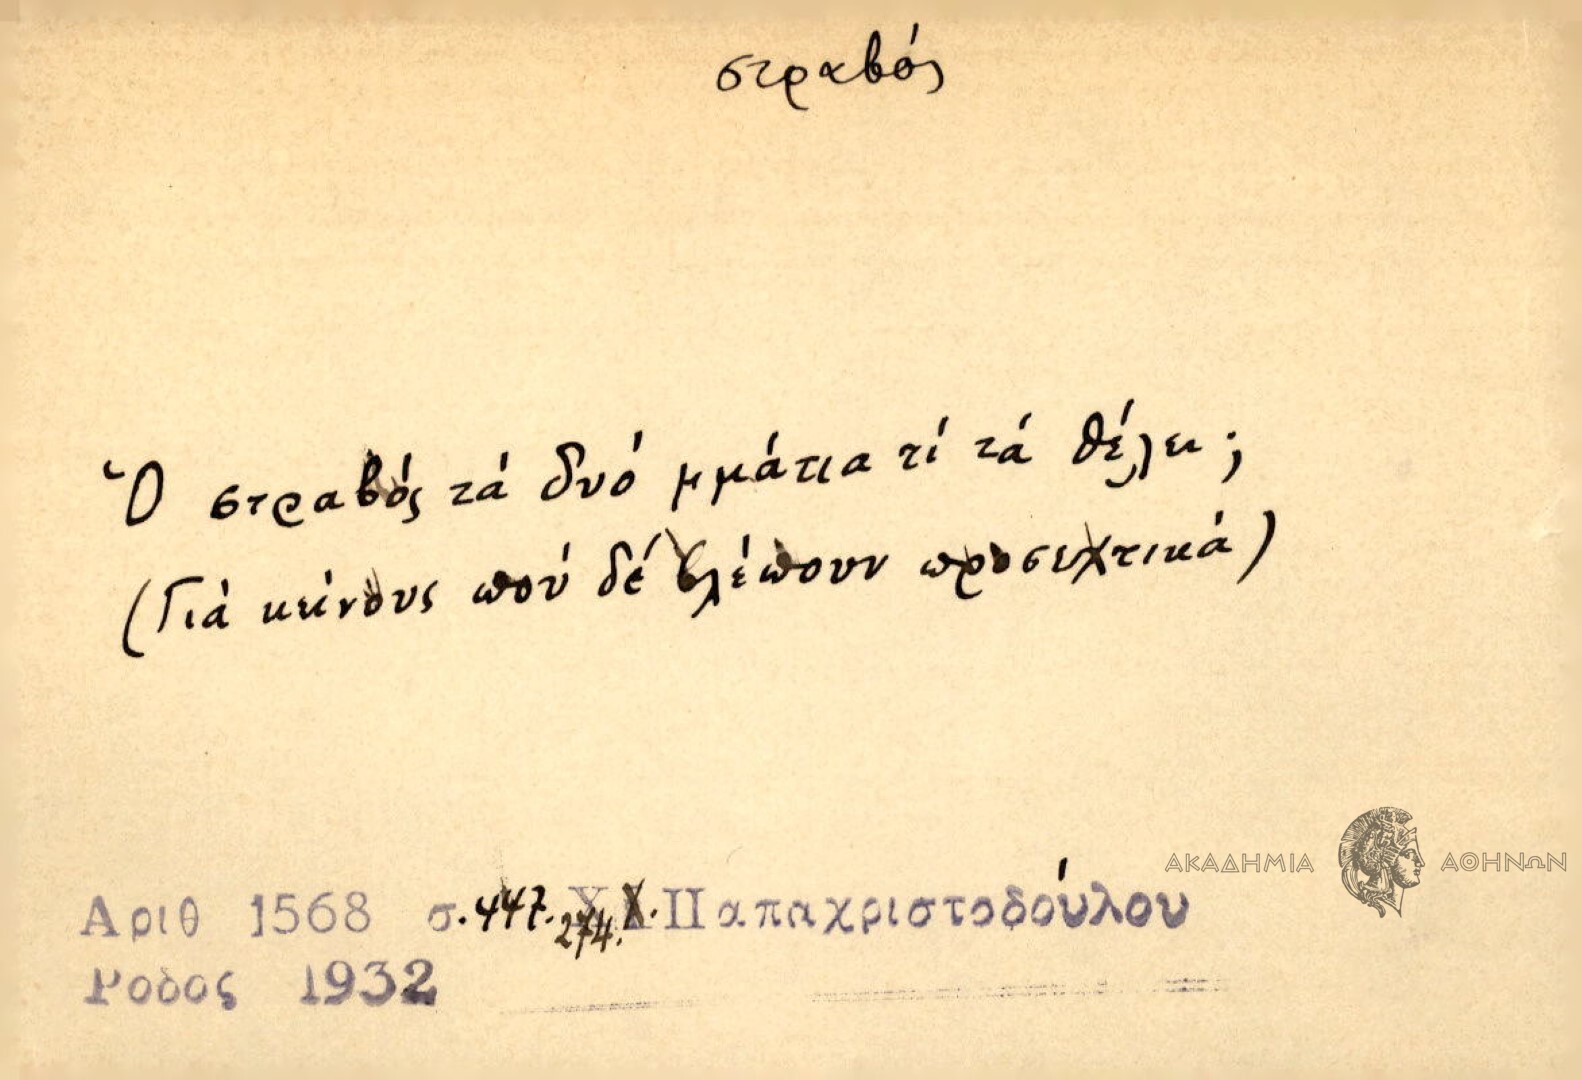 στραβός
Ὁ στραβός τά δυό μμάτια τί τά θέλει;
(Γιά κείνους πού δέ βλέπουν προσεχτικά)
ΑΚΑΔΗΜΙΑ ΑΘΗΝΩΝ
Αριθ 1568 σ. 447. 274. Χ. Παπαχριστοδούλου
Ρόδος 1932